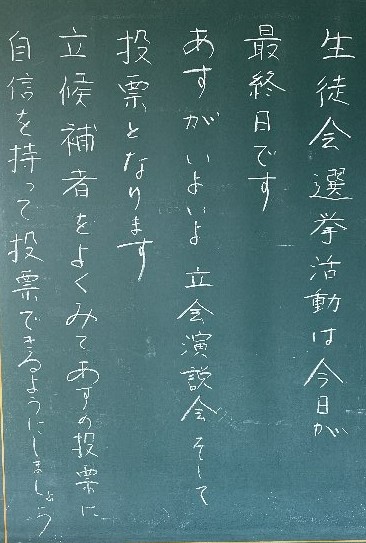 生徒会選挙活動は今日が
最終日です
あすがいよいよ 立会演説会 そして
投票となります
立候補者をよくみてあすの投票に
自信を持って投票できるようにしましょう